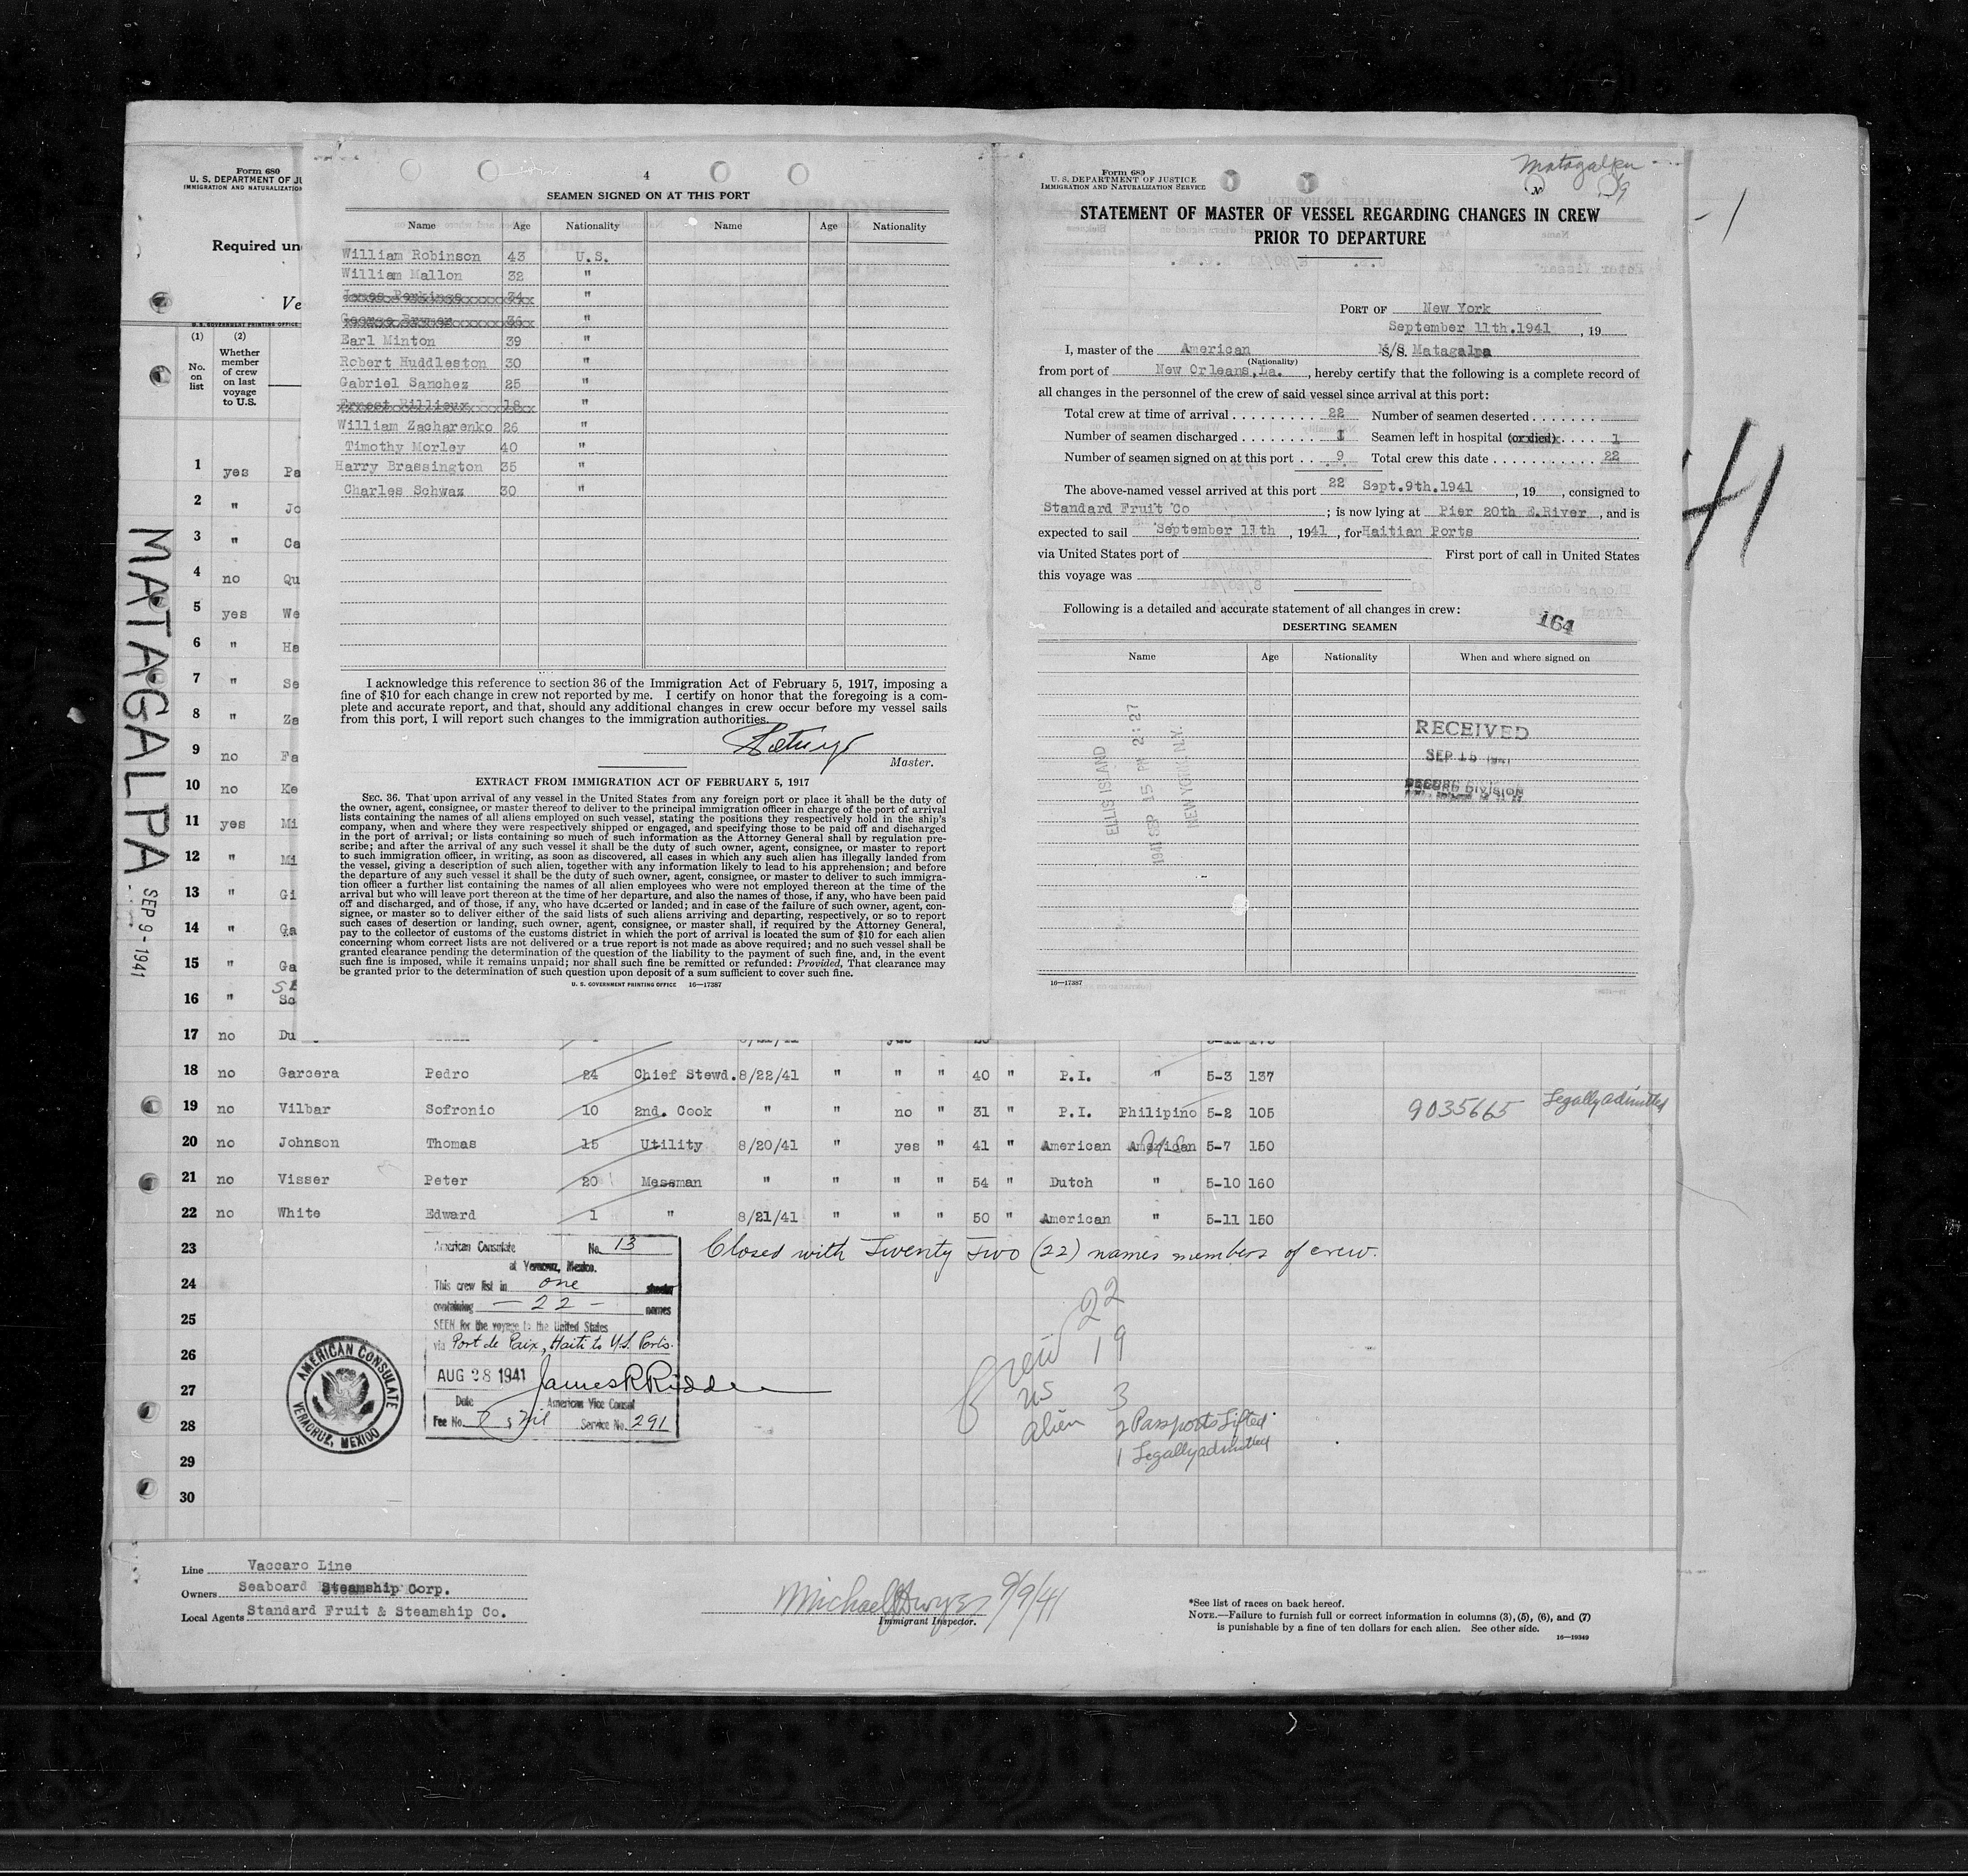 Form 680
U. S. DEPARTMENT OF JU
IMMIGRATION AND NATURALIZATION
Required un
Ve
U. S. GOVERNMENT PRINTING OFFICE
(1) (2)
No. on list
Whether member of crew on last voyage to U.S.
1 yes Pa
2 " Jo
3 " Ca
4 no Qu
5 yes We
6 " Ha
7 " Se
8 " Za
9 no Fa
10 no Ke
11 yes Mi
12 " Mi
13 " Gi
14 " Ga
15 " Ga
16 " So
17 no Du
MATAGALPA
SEP 9 - 1941
4
SEAMEN SIGNED ON AT THIS PORT
Name Age Nationality Name Age Nationality
William Robinson 43 U.S.
William Mallon 32 "
James Perkins 34 "
George 36 "
Earl Minton 39 "
Robert Huddleston 30 "
Gabriel Sanchez 25 "
Ernest Billieux 18 "
William Zacharenko 26 "
Timothy Morley 40 "
Harry Brassington 35 "
Charles Schwaz 30 "
I acknowledge this reference to section 36 of the Immigration Act of February 5, 1917, imposing a
fine of $10 for each change in crew not reported by me. I certify on honor that the foregoing is a com-
plete and accurate report, and that, should any additional changes in crew occur before my vessel sails
from this port, I will report such changes to the immigration authorities.
Master.
EXTRACT FROM IMMIGRATION ACT OF FEBRUARY 5, 1917
SEC. 36. That upon arrival of any vessel in the United States from any foreign port or place it shall be the duty of
the owner, agent, consignee, or master thereof to deliver to the principal immigration officer in charge of the port of arrival
lists containing the names of all aliens employed on such vessel, stating the positions they respectively hold in the ship's
company, when and where they were respectively shipped or engaged, and specifying those to be paid off and discharged
in the port of arrival; or lists containing so much of such information as the Attorney General shall by regulation pre-
scribe; and after the arrival of any such vessel it shall be the duty of such owner, agent, consignee, or master to report
to such immigration officer, in writing, as soon as discovered, all cases in which any such alien has illegally landed from
the vessel, giving a description of such alien, together with any information likely to lead to his apprehension; and before
the departure of any such vessel it shall be the duty of such owner, agent, consignee, or master to deliver to such immigra-
tion officer a further list containing the names of all alien employees who were not employed thereon at the time of the
arrival but who will leave port thereon at the time of her departure, and also the names of those, if any, who have been paid
off and discharged, and of those, if any, who have deserted or landed; and in case of the failure of such owner, agent, con-
signee, or master so to deliver either of the said lists of such aliens arriving and departing, respectively, or so to report
such cases of desertion or landing, such owner, agent, consignee, or master shall, if required by the Attorney General,
pay to the collector of customs of the customs district in which the port of arrival is located the sum of $10 for each alien
concerning whom correct lists are not delivered or a true report is not made as above required; and no such vessel shall be
granted clearance pending the determination of the question of the liability to the payment of such fine, and, in the event
such fine is imposed, while it remains unpaid; nor shall such fine be remitted or refunded: Provided, That clearance may
be granted prior to the determination of such question upon deposit of a sum sufficient to cover such fine.
U. S. GOVERNMENT PRINTING OFFICE 16—17387
Form 689
U. S. DEPARTMENT OF JUSTICE
IMMIGRATION AND NATURALIZATION SERVICE
STATEMENT OF MASTER OF VESSEL REGARDING CHANGES IN CREW
PRIOR TO DEPARTURE
PORT OF New York
September 11th.1941, 19
I, master of the American M/S. Matagalpa
(Nationality)
from port of New Orleans,La., hereby certify that the following is a complete record of
all changes in the personnel of the crew of said vessel since arrival at this port:
Total crew at time of arrival 22 Number of seamen deserted
Number of seamen discharged Seamen left in hospital (or died) 1
Number of seamen signed on at this port 9 Total crew this date 22
The above-named vessel arrived at this port 22 Sept.9th.1941, 19, consigned to
Standard Fruit Co; is now lying at Pier 20th E.River, and is
expected to sail September 11th, 1941, for Haitian Ports
via United States port of First port of call in United States
this voyage was
Following is a detailed and accurate statement of all changes in crew:
164
DESERTING SEAMEN
Name Age Nationality When and where signed on
RECEIVED
SEP 15 1941
RECORD DIVISION
ELLIS ISLAND
1941 SEP 15 PM 2:27
NEW YORK, N.Y.
16—17387
18 no Garcera Pedro 24 Chief Stewd. 8/22/41 " " " 40 " P.I. " 5-3 137
19 no Vilbar Sofronio 10 2nd. Cook " " no " 31 " P.I. Philipino 5-2 105 9035665 Legally admitted
20 no Johnson Thomas 15 Utility 8/20/41 " yes " 41 " American American 5-7 150
21 no Visser Peter 20 Messman " " " " 54 " Dutch " 5-10 160
22 no White Edward 1 " 8/21/41 " " " 50 " American " 5-11 150
23 Closed with Twenty Two (22) names members of crew.
24
25
26
27
28
29
30
American Consulate No. 13
at Veracruz, Mexico.
This crew list in one sheets
containing — 22 — names
SEEN for the voyage to the United States
via Port de Paix, Haiti to U.S. Ports.
AUG 28 1941 James R Riddle
Date American Vice Consul
Fee No. Service No. 291
AMERICAN CONSULATE
VERACRUZ, MEXICO
Crew 22
US 19
Alien 3
2 Passports Lifted
1 Legally admitted
Line Vaccaro Line
Owners Seaboard Steamship Corp.
Local Agents Standard Fruit & Steamship Co.
Michael Dwyer 9/9/41
Immigrant Inspector.
*See list of races on back hereof.
NOTE.—Failure to furnish full or correct information in columns (3), (5), (6), and (7)
is punishable by a fine of ten dollars for each alien. See other side.
16—19349